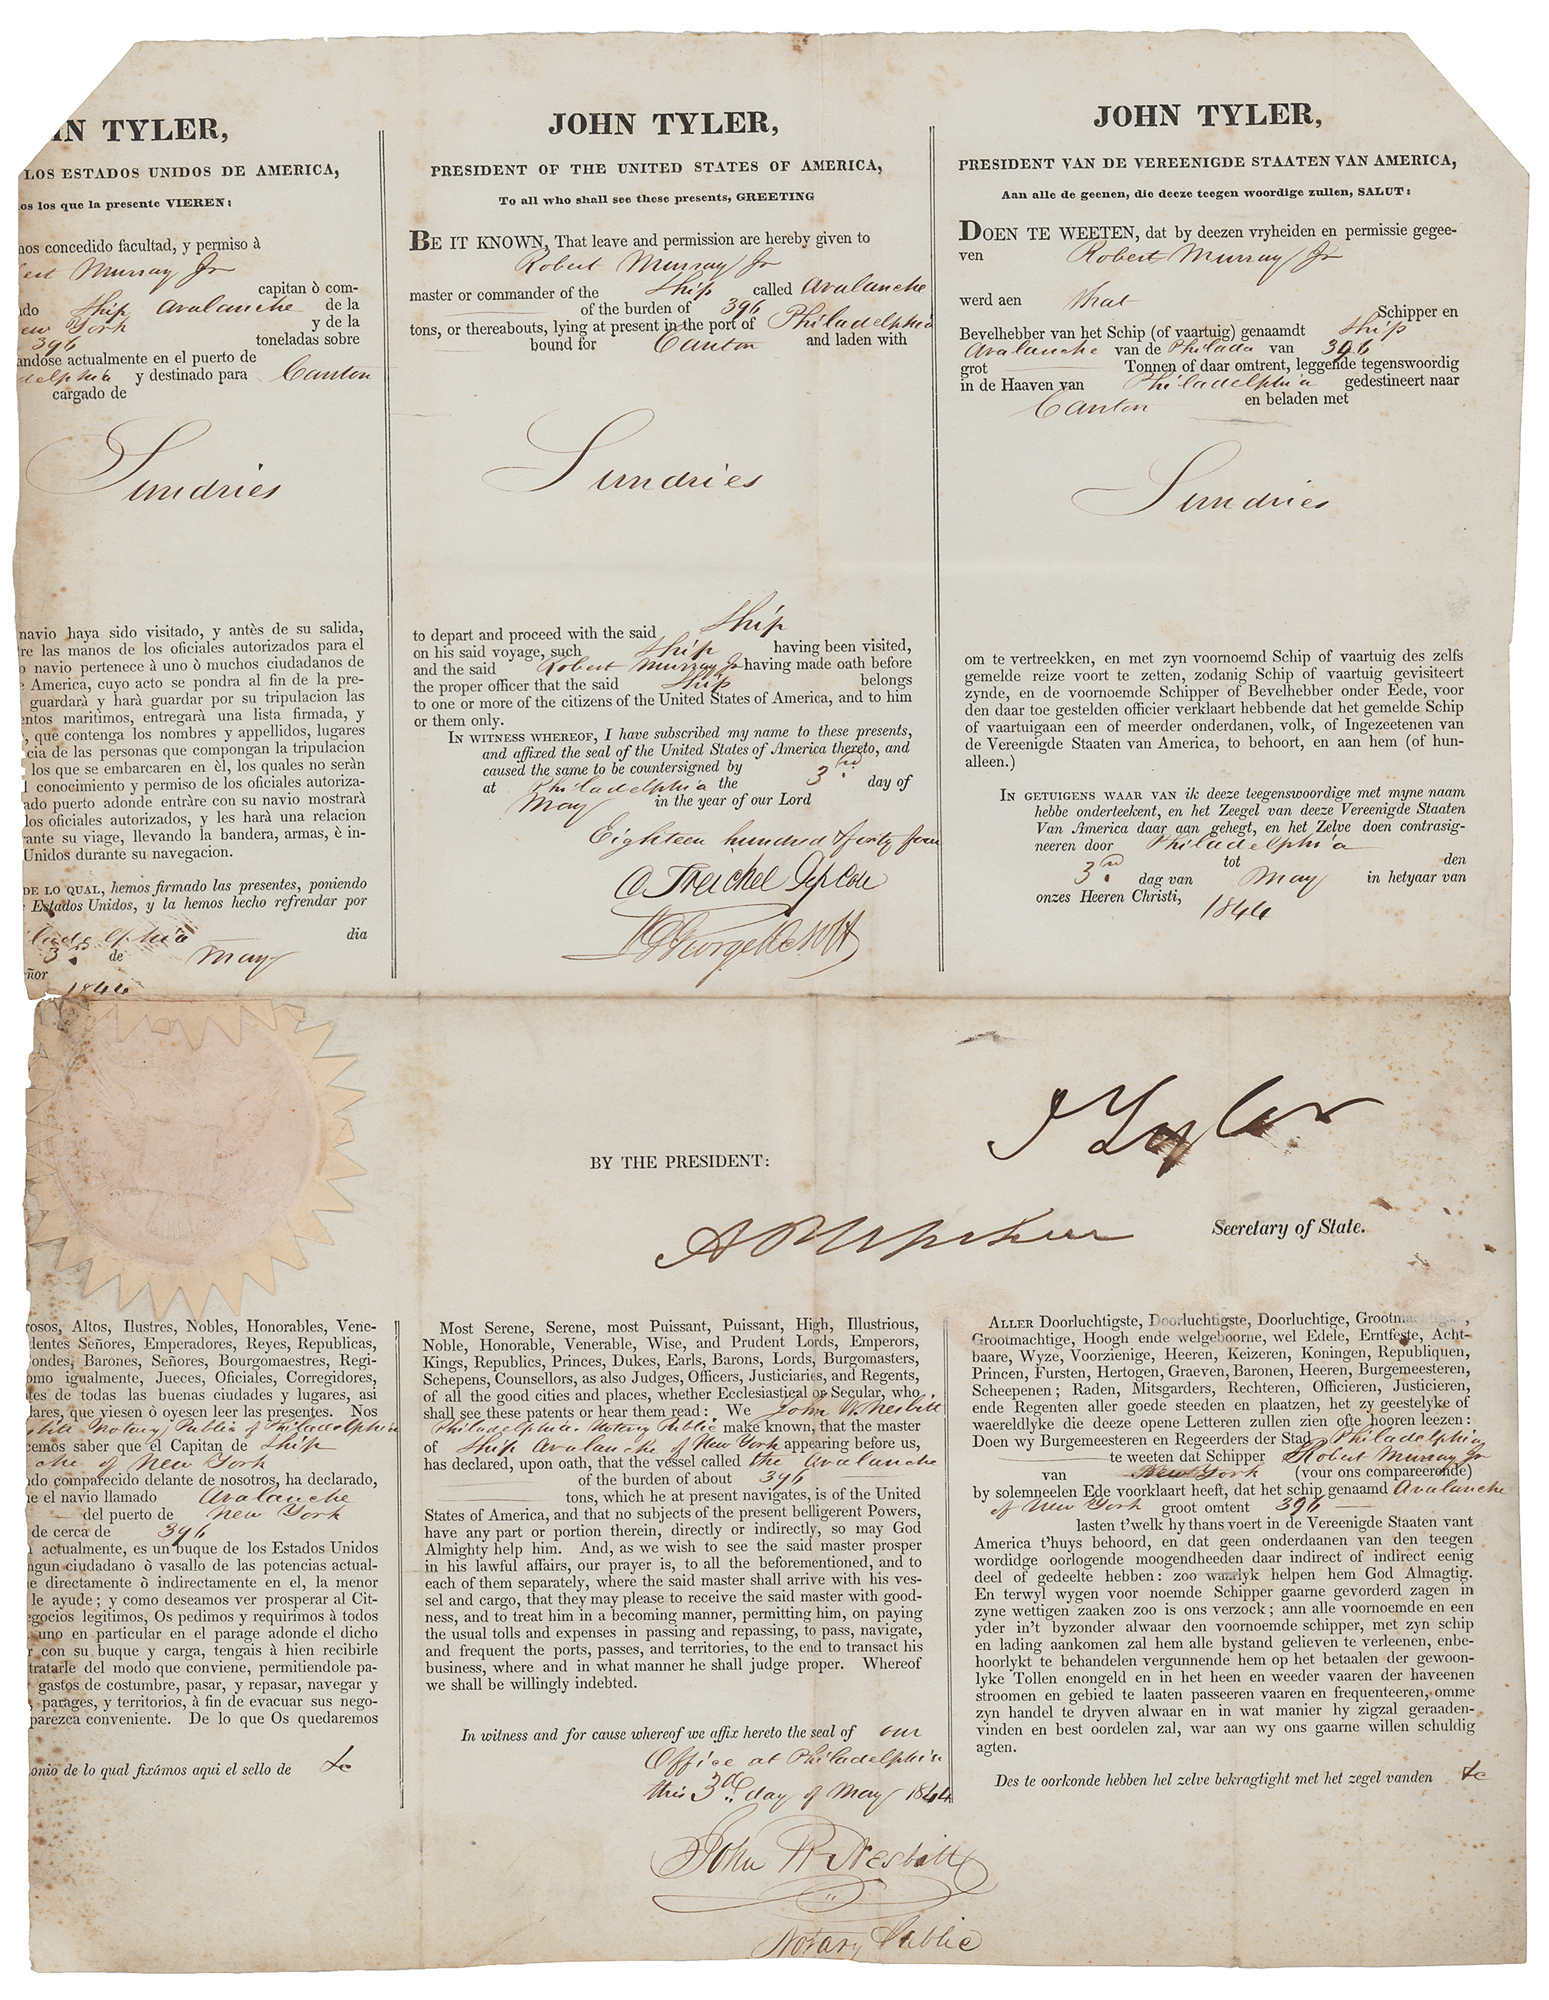 IN TYLER,
LOS ESTADOS UNIDOS DE AMERICA,
os los que la presente VIEREN:
mos concedido facultad, y permiso à
Murray Jr
capitan ò com-
ado Ship Avalanche de la
ew York y de la
396 toneladas sobre
andose actualmente en el puerto de
delphia y destinado para Canton
cargado de
Sundries
navio haya sido visitado, y antès de su salida,
re las manos de los oficiales autorizados para el
o navio pertenece à uno ò muchos ciudadanos de
e America, cuyo acto se pondra al fin de la pre-
guardarà y harà guardar por su tripulacion las
entos maritimos, entregarà una lista firmada, y
, que contenga los nombres y appellidos, lugares
cia de las personas que compongan la tripulacion
los que se embarcaren en èl, los quales no seràn
l conocimiento y permiso de los oficiales autoriza-
ado puerto adonde entràre con su navio mostrarà
los oficiales autorizados, y les harà una relacion
rante su viage, llevando la bandera, armas, è in-
Unidos durante su navegacion.
DE LO QUAL, hemos firmado las presentes, poniendo
Estados Unidos, y la hemos hecho refrendar por
ladelphia dia
3rd de May
ñor
1844
JOHN TYLER,
PRESIDENT OF THE UNITED STATES OF AMERICA,
To all who shall see these presents, GREETING
BE IT KNOWN, That leave and permission are hereby given to
Robert Murray Jr
master or commander of the Ship called Avalanche
of the burden of 396
tons, or thereabouts, lying at present in the port of Philadelphia
bound for Canton and laden with
Sundries
to depart and proceed with the said Ship
on his said voyage, such Ship having been visited,
and the said Robert Murray Jr having made oath before
the proper officer that the said Ship belongs
to one or more of the citizens of the United States of America, and to him
or them only.
IN WITNESS WHEREOF, I have subscribed my name to these presents,
and affixed the seal of the United States of America thereto, and
caused the same to be countersigned by
at Philadelphia the 3rd day of
May in the year of our Lord
Eighteen hundred & forty four
C Treichel Dep Col
JOHN TYLER,
PRESIDENT VAN DE VEREENIGDE STAATEN VAN AMERICA,
Aan alle de geenen, die deeze teegen woordige zullen, SALUT:
DOEN TE WEETEN, dat by deezen vryheiden en permissie gegee-
ven Robert Murray Jr
werd aen that
Schipper en
Bevelhebber van het Schip (of vaartuig) genaamdt Ship
Avalanche van de Philada van 396
grot Tonnen of daar omtrent, leggende tegenswoordig
in de Haaven van Philadelphia gedestineert naar
Canton en beladen met
Sundries
om te vertreekken, en met zyn voornoemd Schip of vaartuig des zelfs
gemelde reize voort te zetten, zodanig Schip of vaartuig gevisiteert
zynde, en de voornoemde Schipper of Bevelhebber onder Eede, voor
den daar toe gestelden officier verklaart hebbende dat het gemelde Schip
of vaartuigaan een of meerder onderdanen, volk, of Ingezeetenen van
de Vereenigde Staaten van America, to behoort, en aan hem (of hun-
alleen.)
IN GETUIGENS WAAR VAN ik deeze teegenswoordige met myne naam
hebbe onderteekent, en het Zeegel van deeze Vereenigde Staaten
Van America daar aan gehegt, en het Zelve doen contrasig-
neeren door Philadelphia
tot den
3rd dag van May in hetyaar van
onzes Heeren Christi,
1844
J Tyler
BY THE PRESIDENT:
A P Upshur Secretary of State.
rosos, Altos, Ilustres, Nobles, Honorables, Vene-
dentes Señores, Emperadores, Reyes, Republicas,
ondes, Barones, Señores, Bourgomaestres, Regi-
omo igualmente, Jueces, Oficiales, Corregidores,
tes de todas las buenas ciudades y lugares, asi
lares, que viesen ò oyesen leer las presentes. Nos
sbitt Notary Public of Philadelphia
cemos saber que el Capitan de Ship
che of New York
ndo comparecido delante de nosotros, ha declarado,
e el navio llamado Avalanche
del puerto de New York
de cerca de 396
actualmente, es un buque de los Estados Unidos
ngun ciudadano ò vasallo de las potencias actual-
e directamente ò indirectamente en el, la menor
le ayude; y como deseamos ver prosperar al Cit-
egocios legitimos, Os pedimos y requirimos à todos
uno en particular en el parage adonde el dicho
r con su buque y carga, tengais à bien recibirle
tratarle del modo que conviene, permitiendole pa-
gastos de costumbre, pasar, y repasar, navegar y
, parages, y territorios, à fin de evacuar sus nego-
parezca conveniente. De lo que Os quedaremos
onio de lo qual fixámos aqui el sello de &c
Most Serene, Serene, most Puissant, Puissant, High, Illustrious,
Noble, Honorable, Venerable, Wise, and Prudent Lords, Emperors,
Kings, Republics, Princes, Dukes, Earls, Barons, Lords, Burgomasters,
Schepens, Counsellors, as also Judges, Officers, Justiciaries, and Regents,
of all the good cities and places, whether Ecclesiastical or Secular, who
shall see these patents or hear them read: We John R. Nesbitt
Philadelphia Notary Public make known, that the master
of Ship Avalanche of New York appearing before us,
has declared, upon oath, that the vessel called the Avalanche
of the burden of about 396
tons, which he at present navigates, is of the United
States of America, and that no subjects of the present belligerent Powers,
have any part or portion therein, directly or indirectly, so may God
Almighty help him. And, as we wish to see the said master prosper
in his lawful affairs, our prayer is, to all the beforementioned, and to
each of them separately, where the said master shall arrive with his ves-
sel and cargo, that they may please to receive the said master with good-
ness, and to treat him in a becoming manner, permitting him, on paying
the usual tolls and expenses in passing and repassing, to pass, navigate,
and frequent the ports, passes, and territories, to the end to transact his
business, where and in what manner he shall judge proper. Whereof
we shall be willingly indebted.
In witness and for cause whereof we affix hereto the seal of our
Office at Philadelphia
this 3rd day of May 1844
John R Nesbitt
Notary Public
ALLER Doorluchtigste, Doorluchtigste, Doorluchtige, Grootmachtigste,
Grootmachtige, Hoogh ende welgeboorne, wel Edele, Erntfeste, Acht-
baare, Wyze, Voorzienige, Heeren, Keizeren, Koningen, Republiquen,
Princen, Fursten, Hertogen, Graeven, Baronen, Heeren, Burgemeesteren,
Scheepenen; Raden, Mitsgarders, Rechteren, Officieren, Justicieren,
ende Regenten aller goede steeden en plaatzen, het zy geestelyke of
waereldlyke die deeze opene Letteren zullen zien ofte hooren leezen:
Doen wy Burgemeesteren en Regeerders der Stad Philadelphia
te weeten dat Schipper Robert Murray Jr
van New York (vour ons compareerende)
by solemneelen Ede voorklaart heeft, dat het schip genaamd Avalanche
of New York groot omtent 396
lasten t'welk hy thans voert in de Vereenigde Staaten vant
America t'huys behoord, en dat geen onderdaanen van den teegen
wordidge oorlogende moogendheeden daar indirect of indirect eenig
deel of gedeelte hebben: zoo waarlyk helpen hem God Almagtig.
En terwyl wygen voor noemde Schipper gaarne gevorderd zagen in
zyne wettigen zaaken zoo is ons verzock; ann alle voornoemde en een
yder in't byzonder alwaar den voornoemde schipper, met zyn schip
en lading aankomen zal hem alle bystand gelieven te verleenen, enbe-
hoorlykt te behandelen vergunnende hem op het betaalen der gewoon-
lyke Tollen enongeld en in het heen en weeder vaaren der haveenen
stroomen en gebied te laaten passeeren vaaren en frequenteeren, omme
zyn handel te dryven alwaar en in wat manier hy zigzal geraaden-
vinden en best oordelen zal, war aan wy ons gaarne willen schuldig
agten.
Des te oorkonde hebben hel zelve bekragtight met het zegel vanden &c